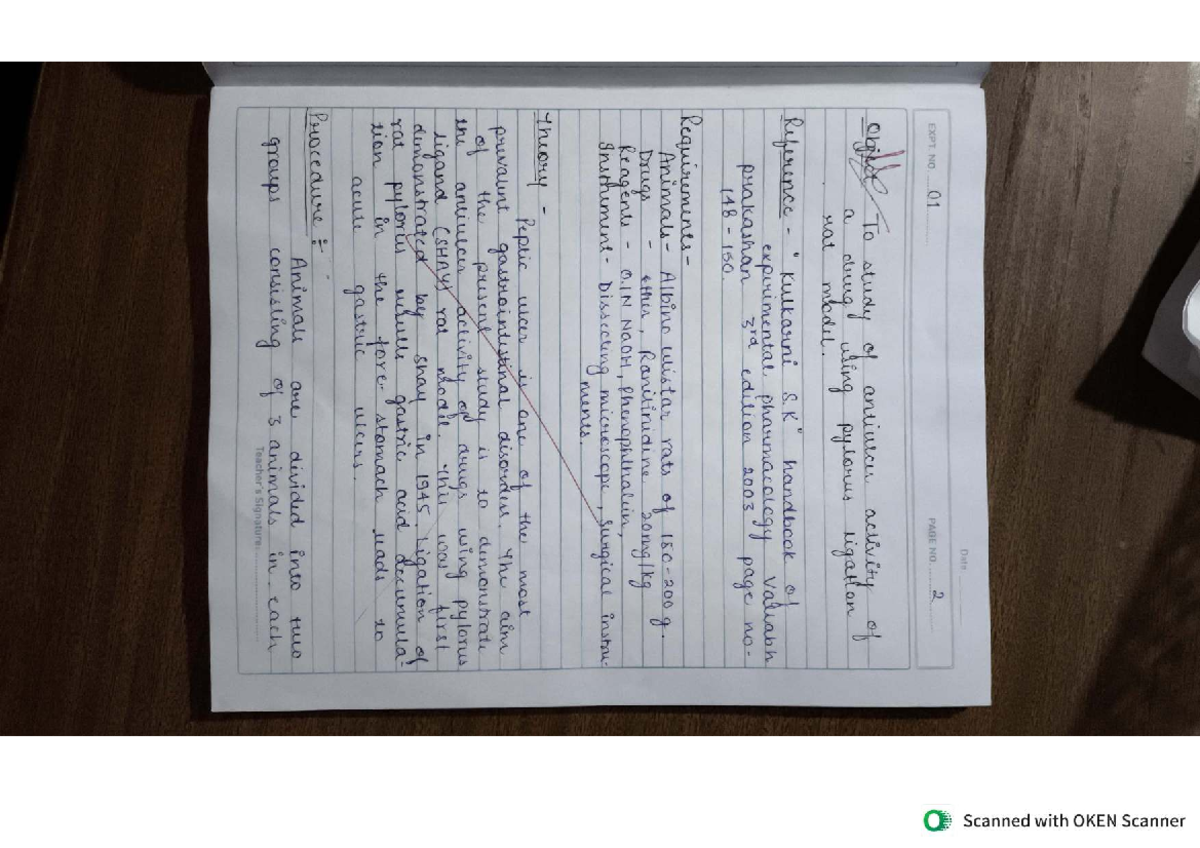 Date
EXPT. NO. 01
PAGE NO. 2
Object To study of antiulcer activity of
a drug using pylorus ligation of
rat model.
Reference - " Kulkarni S.K" handbook of
experimental pharmacology Vallabh
prakashan 3rd edition 2003 page no-
148 - 150.
Requirements-
Animals- Albino Wistar rats of 150-200 g.
Drugs - ether, Ranitinidine 20mg/kg
Reagents - 0.1N NaOH, Phenophthalein,
Instrument- Dissecting microscope, surgical instru-
ments.
Theory -
Peptic ulcer is one of the most
prevalent gastrointestinal disorders. The aim
of the present study is to demonstrate
the antiulcer activity of drugs using pylorus
ligand (SHAY) rat model. This was first
demonstrated by shay in 1945. Ligation of
rat pylorus results gastric acid accumula-
tion in the fore- stomach leads to
acute gastric ulcers.
Procedure :-
Animals are divided into two
groups consisting of 3 animals in each
Teacher's Signature:
Scanned with OKEN Scanner